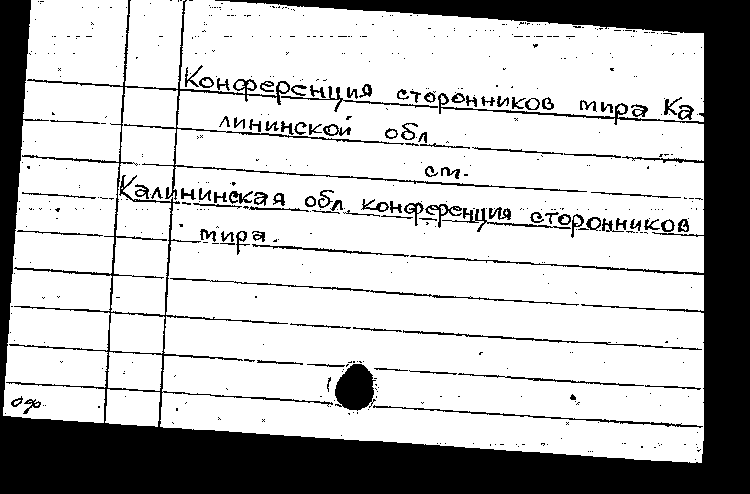 Конференция сторонников мира Ка-
лининской обл.
см.
Калининская обл. конференция сторонников
мира.